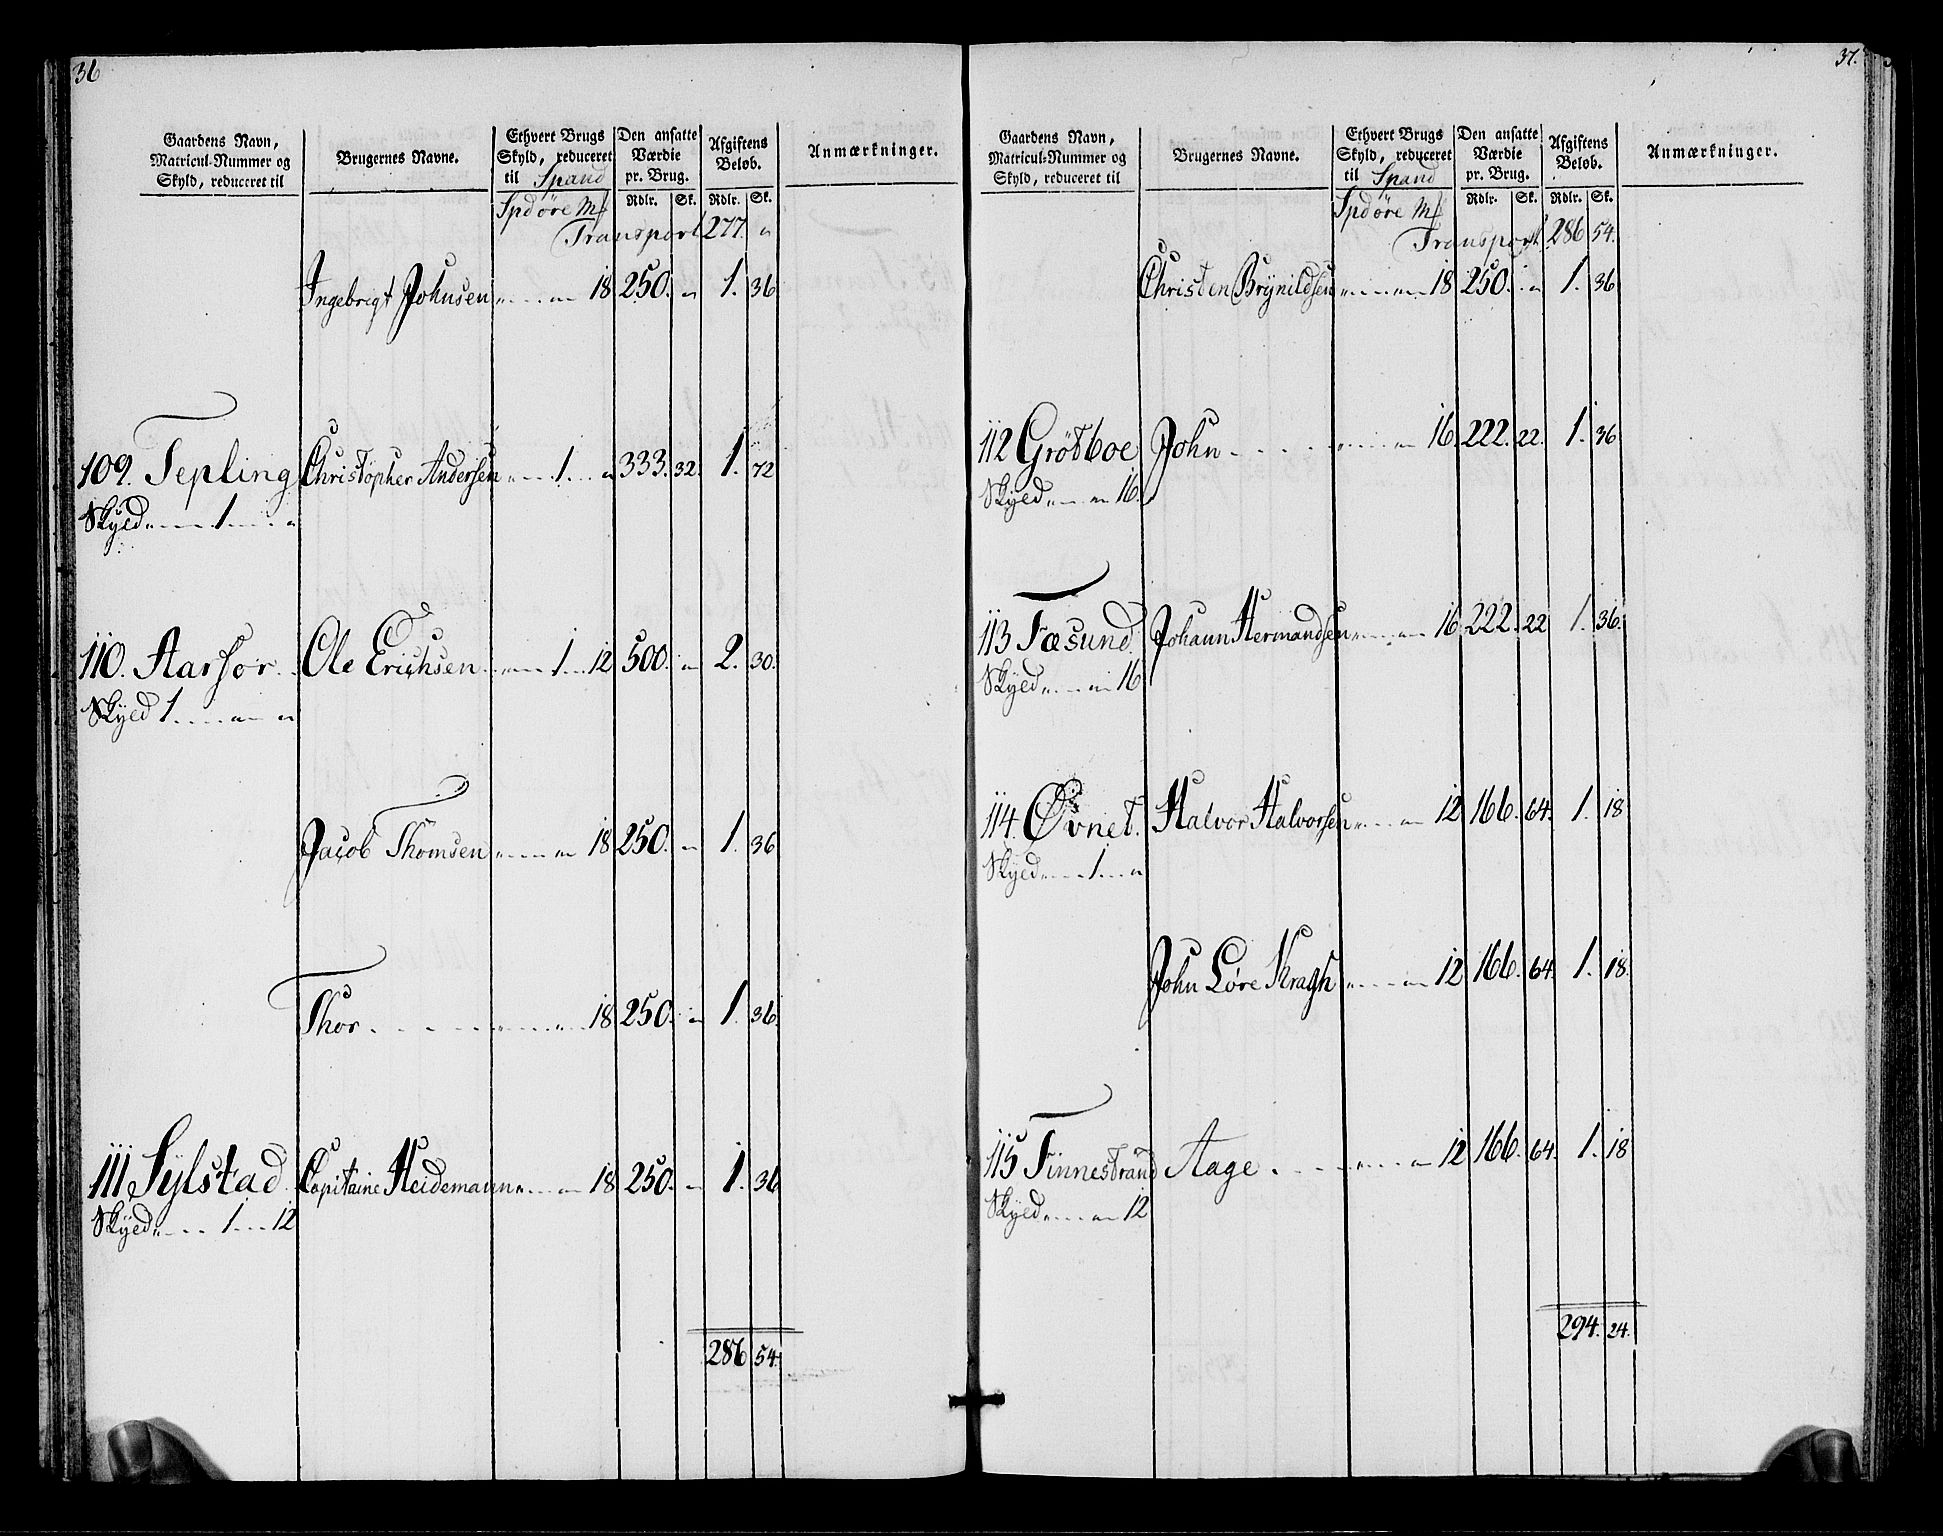 36
Gaardens Navn, Matricul-Nummer og Skyld, reduceret til
Brugernes Navne.
Ethvert Brugs Skyld, reduceret til Spand
Den ansatte Værdie pr. Brug.
Afgiftens Beløb.
Anmærkninger.
Spd öre Mk Rdlr. Sk. Rdlr. Sk.
Transport 277. "
Ingebrigt Johnsen " " 18 250. " 1. 36
109. Tepling Christopher Andersen " 1 " 333. 32. 1. 72
Skyld " 1 "
110. Aarsor Ole Erichsen " 1 12 500. " 2. 30.
Skyld 1 " "
Jacob Thomsen " " 18 250. " 1. 36
Thor " " 18 250. " 1. 36
111 Sylstad Capitaine Heidemann " " 18 250. " 1. 36
Skyld " 1 12
286 54.
37.
Gaardens Navn, Matricul-Nummer og Skyld, reduceret til
Brugernes Navne.
Ethvert Brugs Skyld, reduceret til Spand
Den ansatte Værdie pr. Brug.
Afgiftens Beløb.
Anmærkninger.
Spd öre Mk Rdlr. Sk. Rdlr. Sk.
Transport 286 54.
Christen Brynildsen " " 18 250. " 1. 36
112 Grötboe John " " 16 222. 22. 1. 36
Skyld " " 16.
113 Fæsund Johann Hermandsen " " 16 222. 22 1. 36.
Skyld " " 16
114. Øvnet. Halvor Halvorsen " " 12 166. 64. 1. 18
Skyld " 1 "
John Löre Kragh " " 12 166. 64. 1. 18.
115 Finnestrand Aage " " 12 166. 64. 1. 18
Skyld " " 12
294. 24.